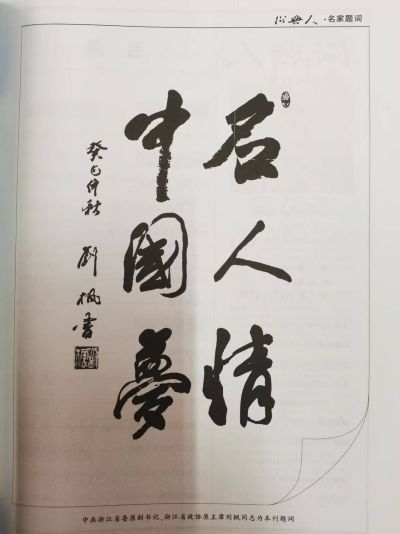 ·名家题词
名人情
中國夢
癸巳仲秋 刘枫書
中共浙江省委原副书记、浙江省政协原主席刘枫同志为本刊题词